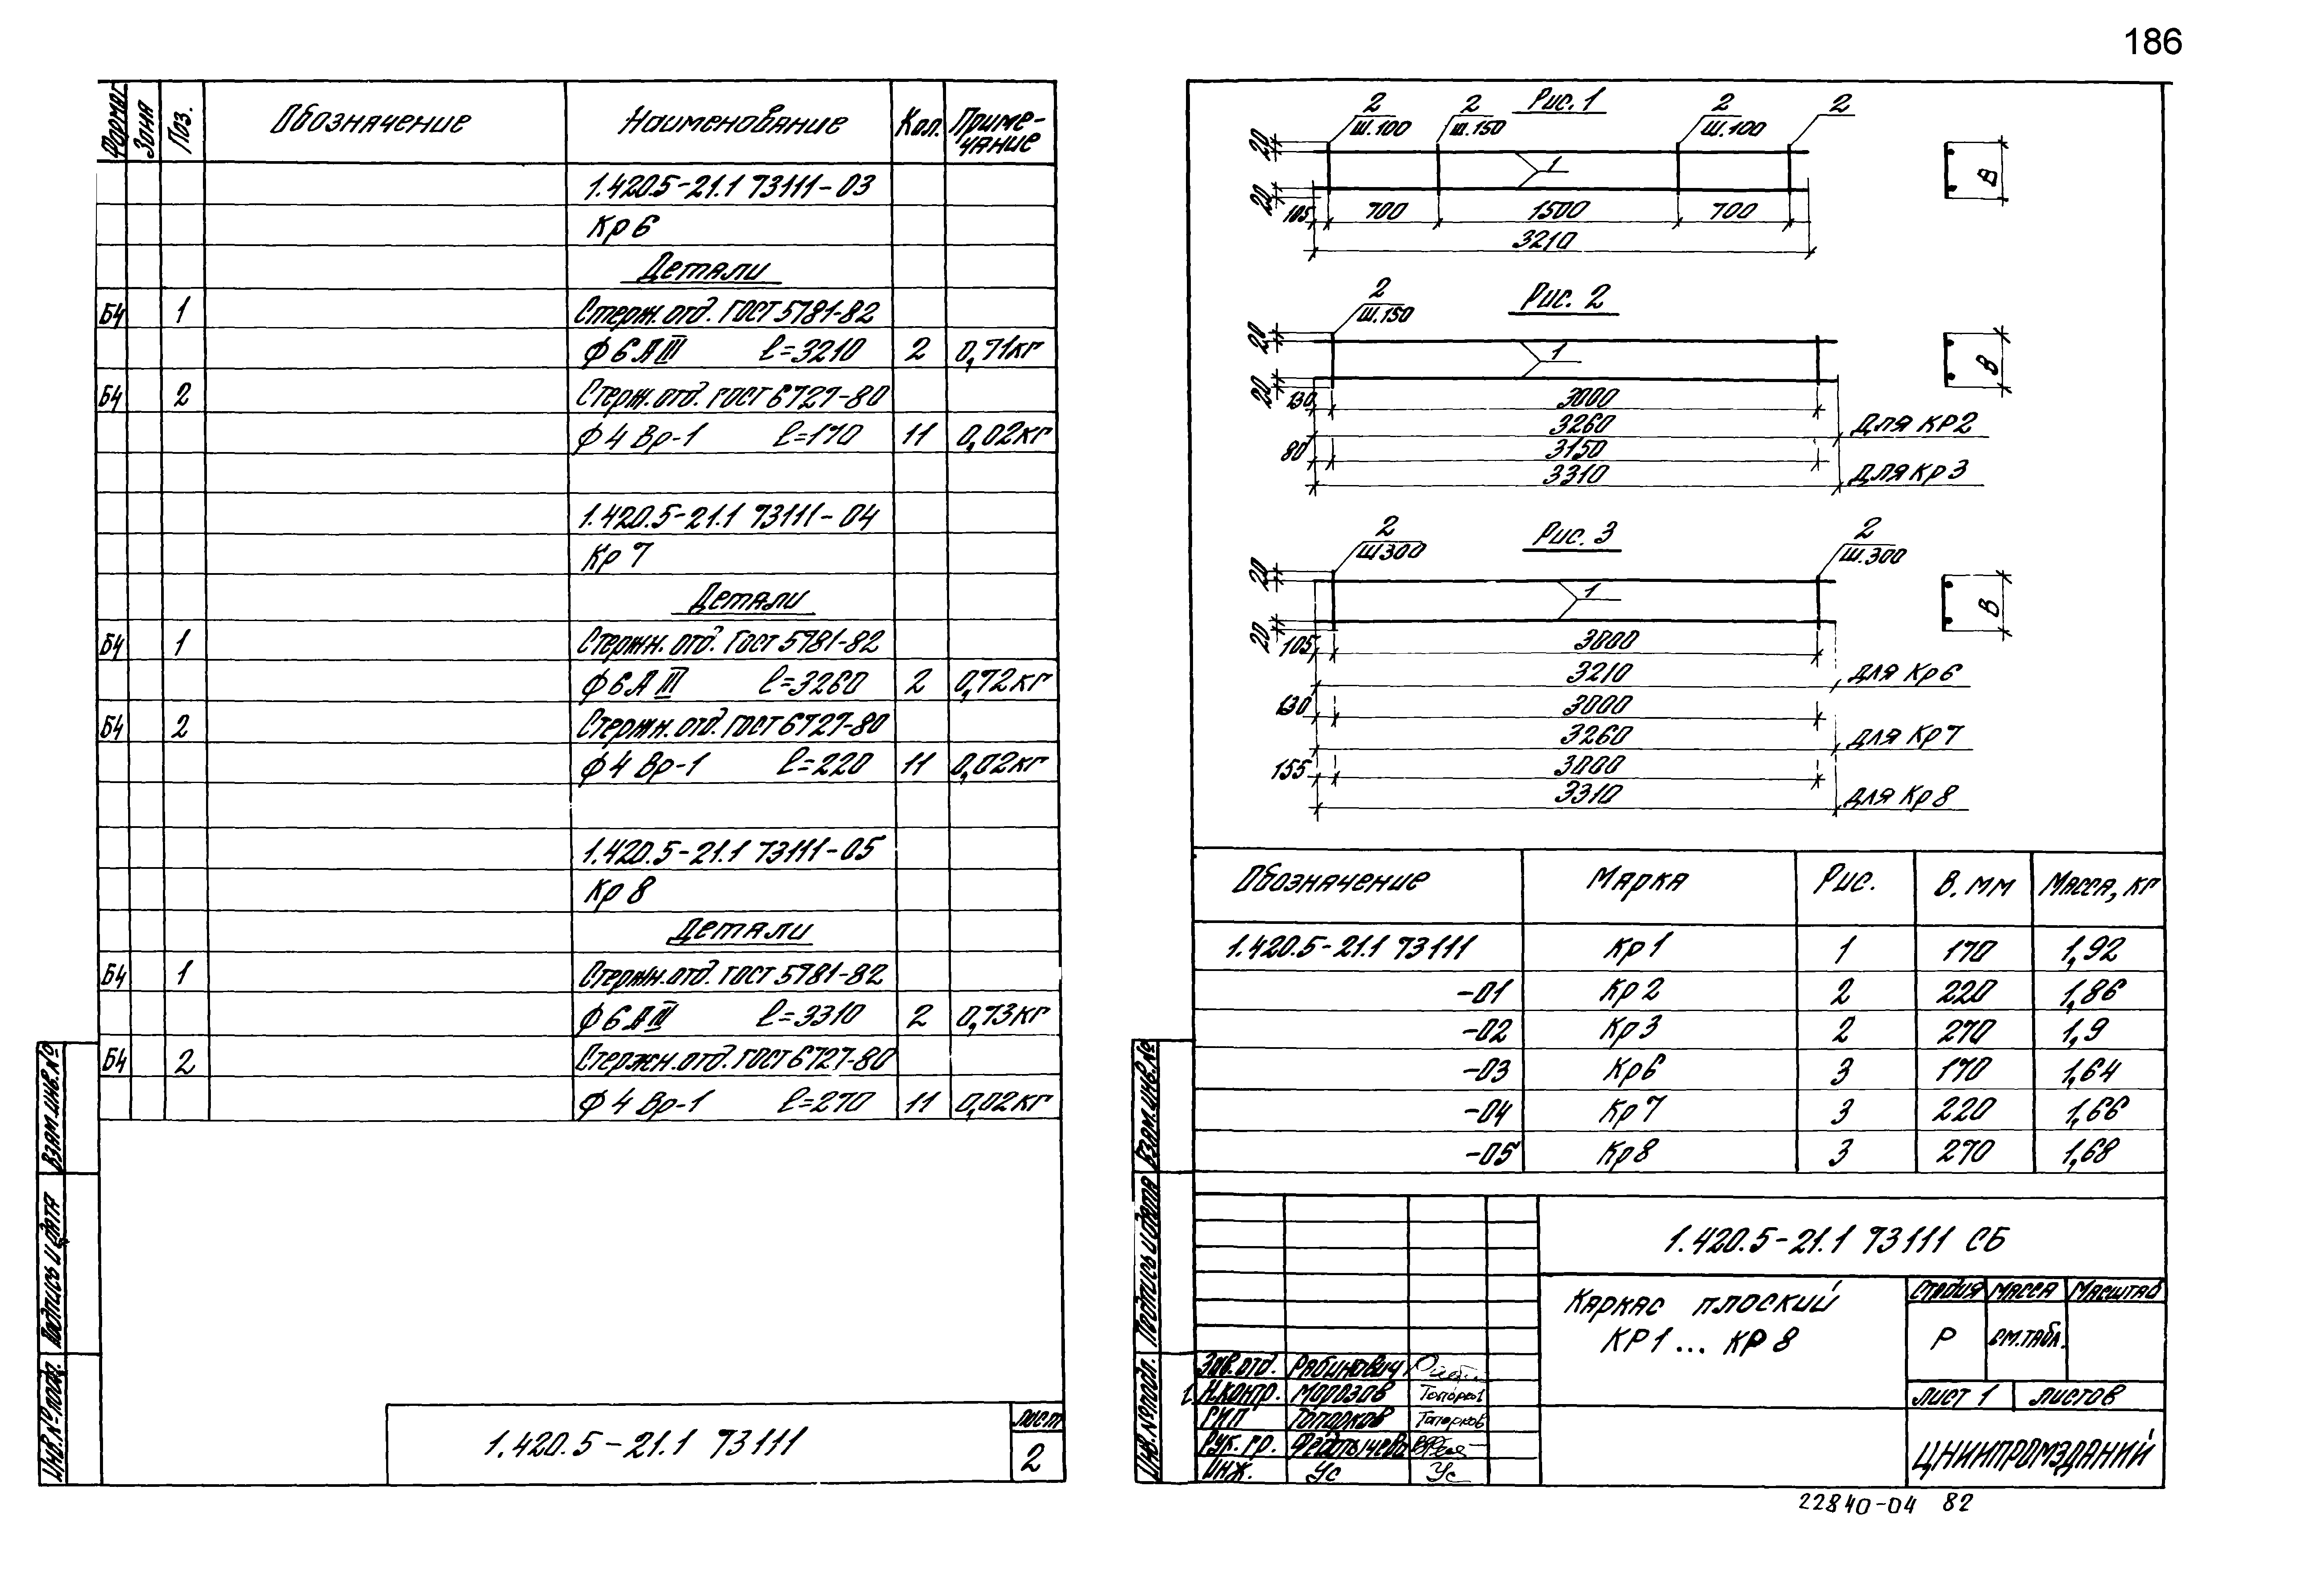 186
Формат Зона Поз. Обозначение Наименование Кол. Приме-
чание
1.420.5-21.1 73111-03
Кр 6
Детали
Б4 1 Стерж. отд. ГОСТ 5781-82
Ф 6 А III ℓ=3210 2 0,71кг
Б4 2 Стерж. отд. ГОСТ 6727-80
Ф 4 Вр-1 ℓ=170 11 0,02кг
1.420.5-21.1 73111-04
Кр 7
Детали
Б4 1 Стержн. отд. ГОСТ 5781-82
Ф 6 А III ℓ=3260 2 0,72кг
Б4 2 Стержн. отд. ГОСТ 6727-80
Ф 4 Вр-1 ℓ=220 11 0,02кг
1.420.5-21.1 73111-05
Кр 8
Детали
Б4 1 Стержн. отд. ГОСТ 5781-82
Ф 6 А III ℓ=3310 2 0,73кг
Б4 2 Стержн. отд. ГОСТ 6727-80
Ф 4 Вр-1 ℓ=270 11 0,02кг
Взам. инв. №
Подпись и дата
Инв. № подл.
1.420.5-21.1 73111
Лист
2
Рис. 1
2 2 2 2
Ш.100 Ш.150 Ш.100
20
1
В
20
105 700 1500 700
3210
Рис. 2
2
Ш.150
20
1
В
20
130 3000
3260 Для КР2
80 3150
3310 Для Кр 3
Рис. 3
2 2
Ш300 Ш.300
20
1
В
20
105 3000
3210 Для Кр 6
130 3000
3260 Для Кр 7
155 3000
3310 Для Кр 8
Обозначение Марка Рис. В. мм Масса, кг
1.420.5-21.1 73111 Кр 1 1 170 1,92
-01 Кр 2 2 220 1,86
-02 Кр 3 2 270 1,9
-03 Кр6 3 170 1,64
-04 Кр 7 3 220 1,66
-05 Кр 8 3 270 1,68
Взам. инв. №
Подпись и дата
Инв. № подл.
1.420.5-21.1 73111 СБ
Каркас плоский
КР 1 ... КР 8
Стадия Масса Масштаб
Р см.табл.
Лист 1 Листов
ЦНИИПРОМЗДАНИЙ
Зав. отд. Рабинович
Н.контр. Морозов Топорков
ГИП Топорков Топорков
Рук. гр.
Инж. Ус Ус
22840-04 82